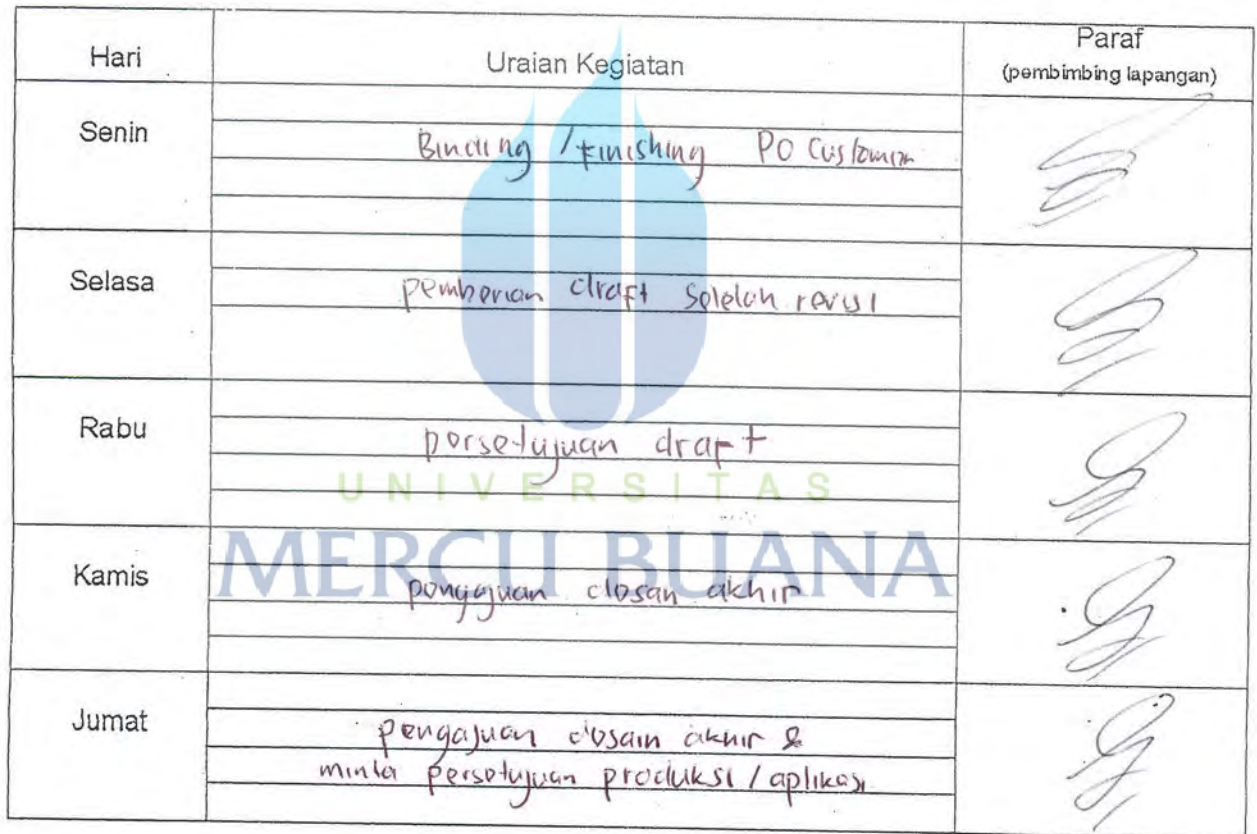 Hari Uraian Kegiatan Paraf
(pembimbing lapangan)
Senin
Binding / Finishing PO Customer
Selasa
pemberian draft setelah revisi
Rabu
persetujuan draft
UNIVERSITAS
MERCU BUANA
Kamis
pengajuan desain akhir
Jumat
pengajuan desain akhir &
minta persetujuan produksi / aplikasi